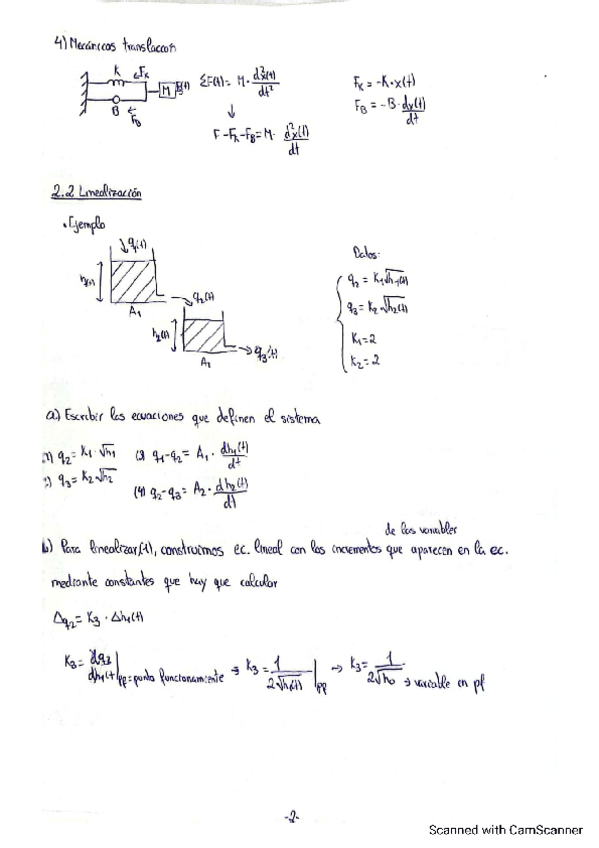 4) Mecánicos translacion
K ←F_K
M F(t)
B ← F_B
ΣF(t) = M · d²x(t)/dt²
↓
F - F_K - F_B = M · d²x(t)/dt
F_K = -K · x(t)
F_B = -B · dx(t)/dt
2.2 Linealización
• Ejemplo
↓ q₁(t)
h₁(t)
A₁
→ q₂(t)
h₂(t)
→ q₃(t)
A₂
Datos:
q₂ = K₁√h₁(t)
q₃ = K₂·√h₂(t)
K₁ = 2
K₂ = 2
a) Escribir las ecuaciones que definen el sistema
1) q₂ = K₁ · √h₁ (3) q₁ - q₂ = A₁ · dh₁(t)/dt
2) q₃ = K₂√h₂
(4) q₂ - q₃ = A₂ · dh₂(t)/dt
de las variables
b) Para linealizar (1), construimos ec. lineal con los incrementos que aparecen en la ec.
mediante constantes que hay que calcular
Δq₂ = K₃ · Δh₁(t)
pp = punto funcionamiente
→ variable en pf
-2-
Scanned with CamScanner